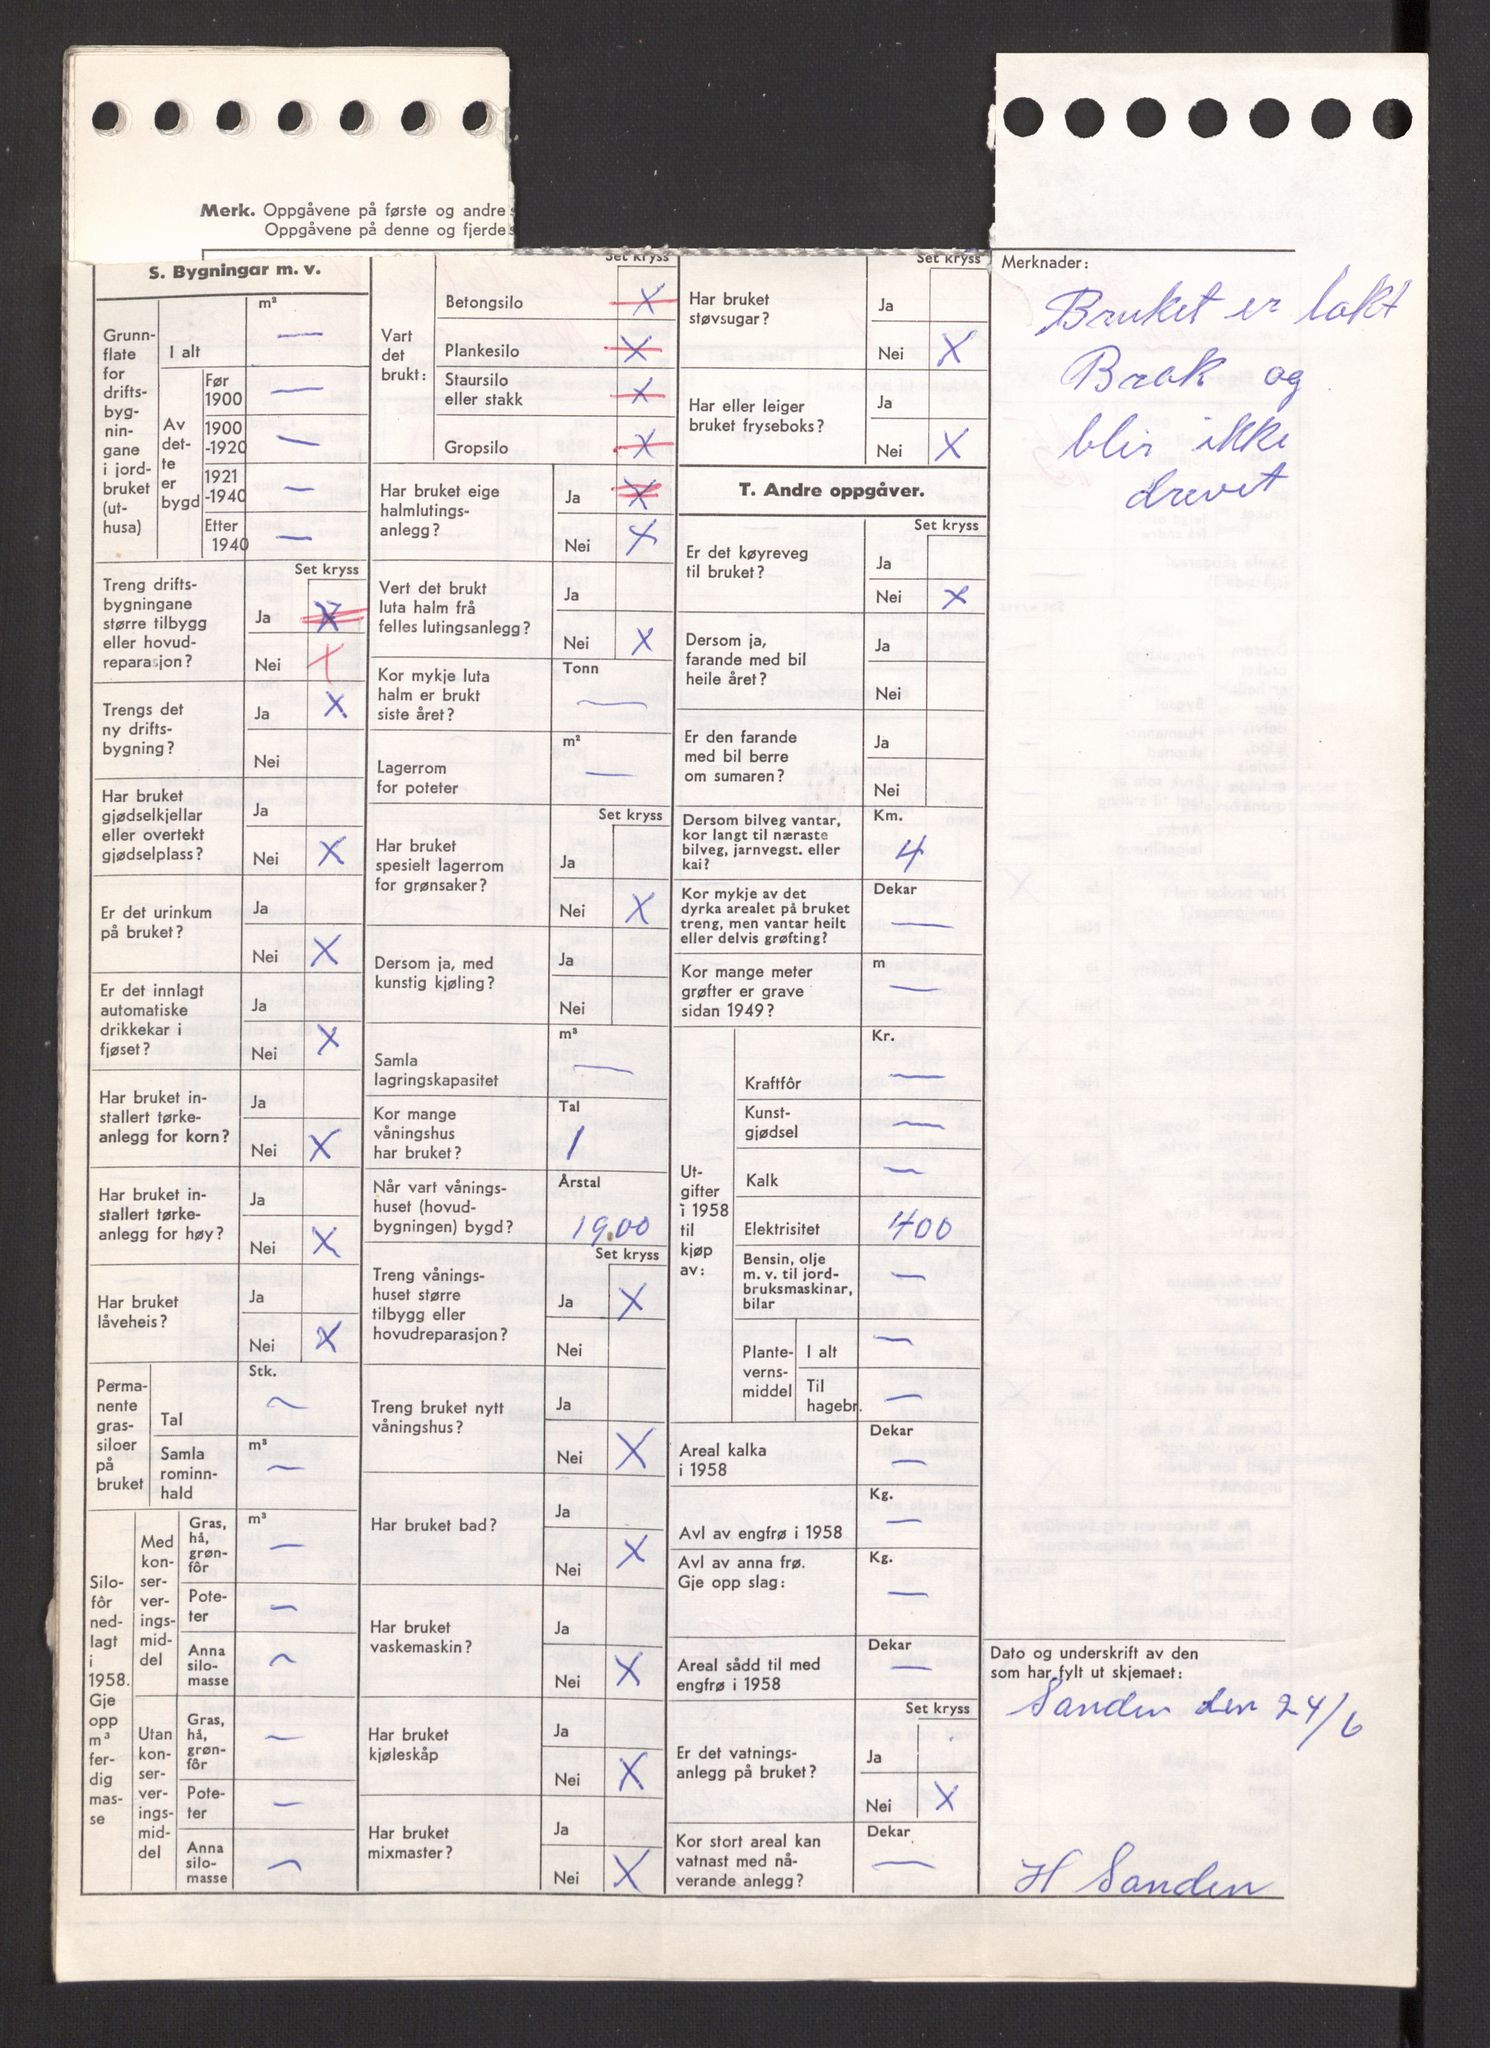 Merk. Oppgåvene på første og andre s
Oppgåvene på denne og fjerde s
S. Bygningar m. v.
Grunn-
flate
for
drifts-
byg-
nin-
gane
i jord-
bruket
(ut-
husa)
I alt
m²
—
Av
det-
te
er
bygd
Før
1900
—
1900
-1920
—
1921
-1940
—
Etter
1940
—
Set kryss
Treng drifts-
bygningane
større tilbygg
eller hovud-
reparasjon?
Ja X
Nei X
Trengs det
ny drifts-
bygning?
Ja X
Nei
Har bruket
gjødselkjellar
eller overtekt
gjødselplass?
Ja
Nei X
Er det urinkum
på bruket?
Ja
Nei X
Er det innlagt
automatiske
drikkekar i
fjøset?
Ja
Nei X
Har bruket in-
stallert tørke-
anlegg for korn?
Ja
Nei X
Har bruket in-
stallert tørke-
anlegg for høy?
Ja
Nei X
Har bruket
låveheis?
Ja
Nei X
Perma-
nente
gras-
siloer
på
bruket
Tal
Stk.
—
Samla
rominn-
hald
m³
—
Silo-
fôr
ned-
lagt
i
1958.
Gje
opp
m³
fer-
dig
mas-
se
Med
kon-
ser-
ver-
ings-
mid-
del
Gras,
hå,
grøn-
fôr
m³
—
Pote-
ter
—
Anna
silo-
masse
—
Utan
kon-
ser-
ver-
ings-
mid-
del
Gras,
hå,
grøn-
fôr
—
Pote-
ter
—
Anna
silo-
masse
—
Set kryss
Vart
det
brukt:
Betongsilo X
Plankesilo X
Staursilo
eller stakk X
Gropsilo X
Har bruket eige
halmlutings-
anlegg?
Ja X
Nei X
Vert det brukt
luta halm frå
felles lutingsanlegg?
Ja
Nei X
Kor mykje luta
halm er brukt
siste året?
Tonn
—
Lagerrom
for poteter
m²
—
Set kryss
Har bruket
spesielt lagerrom
for grønsaker?
Ja
Nei X
Dersom ja, med
kunstig kjøling?
Ja
Nei
Samla
lagringskapasitet
m³
—
Kor mange
våningshus
har bruket?
Tal
1
Når vart vånings-
huset (hovud-
bygningen) bygd?
Årstal
1900
Set kryss
Treng vånings-
huset større
tilbygg eller
hovudreparasjon?
Ja X
Nei
Treng bruket nytt
våningshus?
Ja
Nei X
Har bruket bad?
Ja
Nei X
Har bruket
vaskemaskin?
Ja
Nei X
Har bruket
kjøleskåp
Ja
Nei X
Har bruket
mixmaster?
Ja
Nei X
Set kryss
Har bruket
støvsugar?
Ja
Nei X
Har eller leiger
bruket fryseboks?
Ja
Nei X
T. Andre oppgåver.
Set kryss
Er det køyreveg
til bruket?
Ja
Nei X
Dersom ja,
farande med bil
heile året?
Ja
Nei
Er den farande
med bil berre
om sumaren?
Ja
Nei
Dersom bilveg vantar,
kor langt til næraste
bilveg, jarnvegst. eller
kai?
Km.
4
Kor mykje av det
dyrka arealet på bruket
treng, men vantar heilt
eller delvis grøfting?
Dekar
—
Kor mange meter
grøfter er grave
sidan 1949?
m
—
Ut-
gifter
i 1958
til
kjøp
av:
Kr.
Kraftfôr —
Kunst-
gjødsel —
Kalk —
Elektrisitet 400
Bensin, olje
m. v. til jord-
bruksmaskinar,
bilar
—
Plante-
verns-
middel
I alt —
Til
hagebr. —
Areal kalka
i 1958
Dekar
—
Avl av engfrø i 1958
Kg.
—
Avl av anna frø.
Gje opp slag:
Kg.
—
Areal sådd til med
engfrø i 1958
Dekar
—
Set kryss
Er det vatnings-
anlegg på bruket?
Ja
Nei X
Kor stort areal kan
vatnast med nå-
verande anlegg?
Dekar
—
Merknader:
Bruket er lakt
Brak og
blir ikke
drevet
Dato og underskrift av den
som har fylt ut skjemaet:
Sanden den 24/6
H Sanden